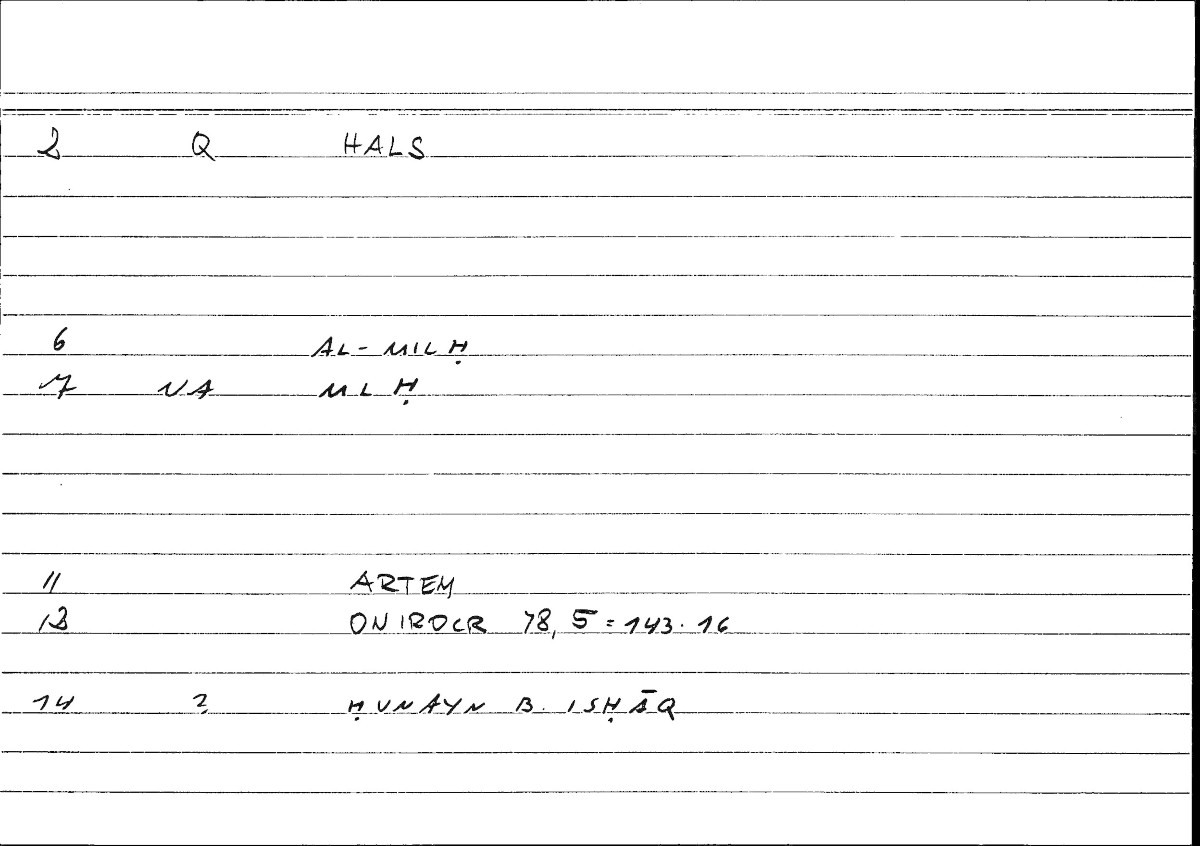 2 Q HALS
6 AL-MILḤ
7 NA MLḤ
11 ARTEM
13 ONIROCR 78, 5 = 143.16
14 2 ḤUNAYN B. ISḤĀQ